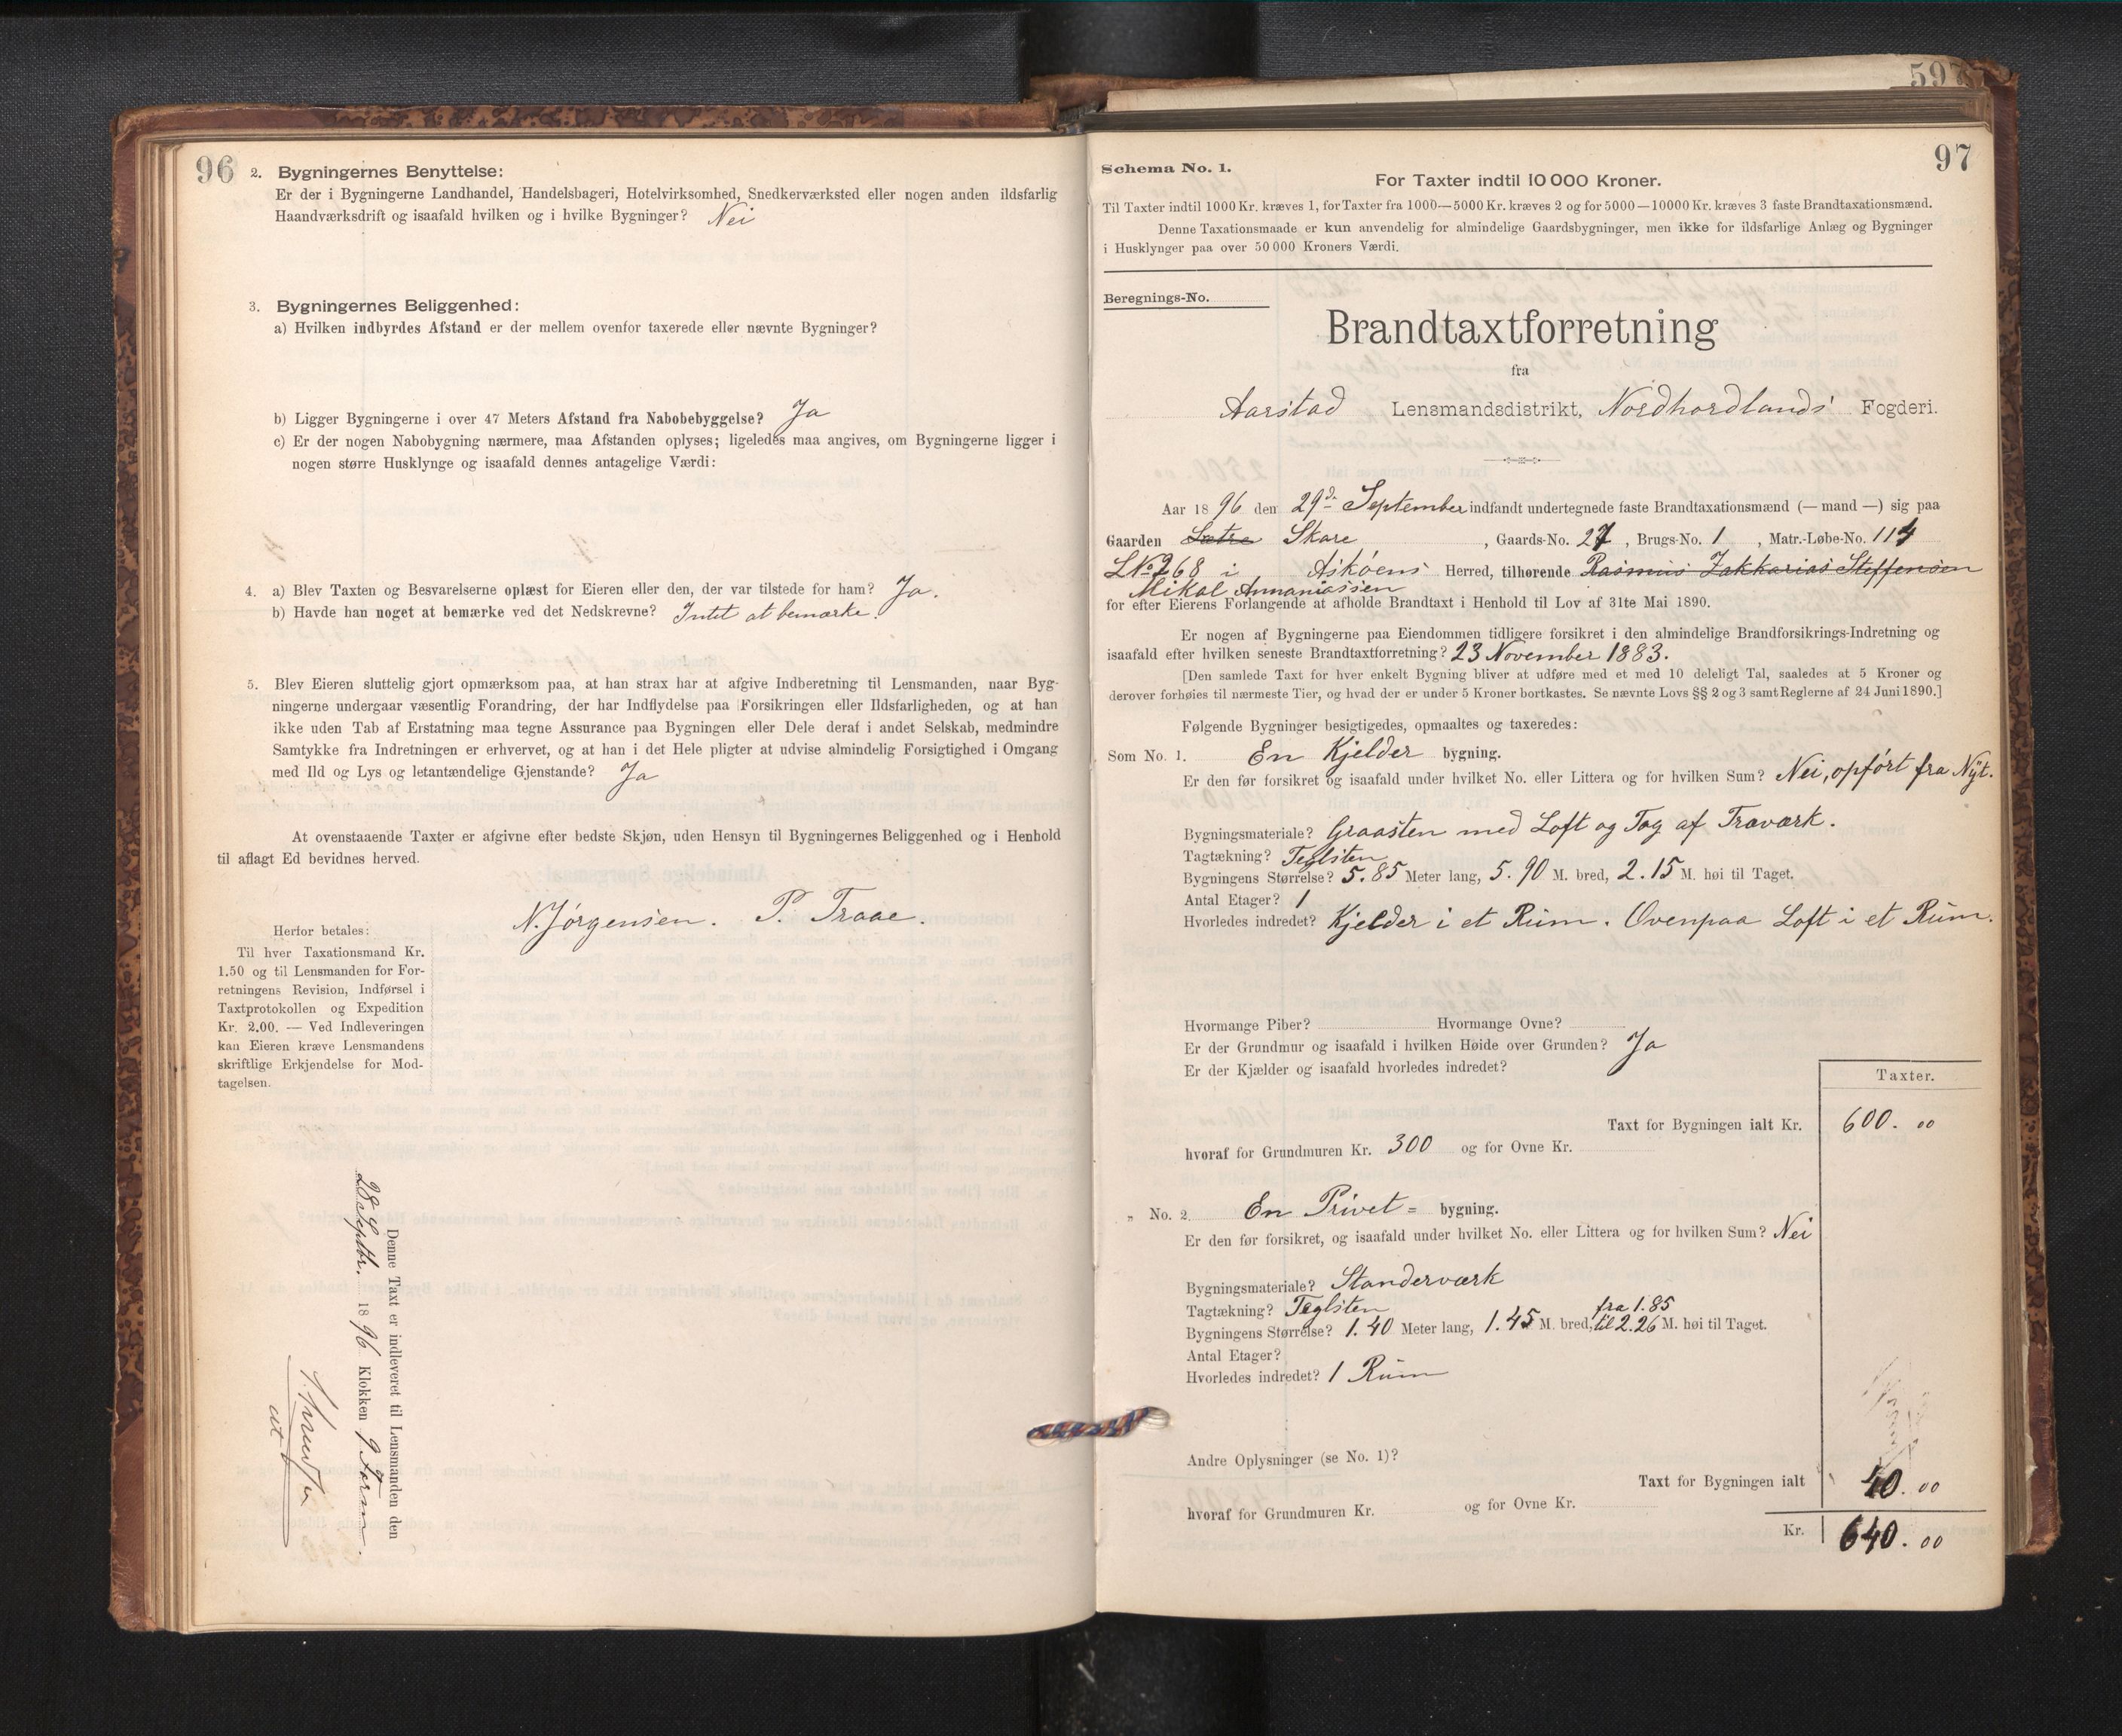 96
2. Bygningernes Benyttelse:
Er der i Bygningerne Landhandel, Handelsbageri, Hotelvirksomhed, Snedkerværksted eller nogen anden ildsfarlig
Haandværksdrift og isaafald hvilken og i hvilke Bygninger? Nei
3. Bygningernes Beliggenhed:
a) Hvilken indbyrdes Afstand er der mellem ovenfor taxerede eller nævnte Bygninger?
b) Ligger Bygningerne i over 47 Meters Afstand fra Nabobebyggelse? Ja
c) Er der nogen Nabobygning nærmere, maa Afstanden oplyses; ligeledes maa angives, om Bygningerne ligger i
nogen større Husklynge og isaafald dennes antagelige Værdi:
4. a) Blev Taxten og Besvarelserne oplæst for Eieren eller den, der var tilstede for ham? Ja.
b) Havde han noget at bemærke ved det Nedskrevne? Intet at bemærke.
5. Blev Eieren sluttelig gjort opmærksom paa, at han strax har at afgive Indberetning til Lensmanden, naar Byg-
ningerne undergaar væsentlig Forandring, der har Indflydelse paa Forsikringen eller Ildsfarligheden, og at han
ikke uden Tab af Erstatning maa tegne Assurance paa Bygningen eller Dele deraf i andet Selskab, medmindre
Samtykke fra Indretningen er erhvervet, og at han i det Hele pligter at udvise almindelig Forsigtighed i Omgang
med Ild og Lys og letantændelige Gjenstande? Ja
At ovenstaaende Taxter er afgivne efter bedste Skjøn, uden Hensyn til Bygningernes Beliggenhed og i Henhold
til aflagt Ed bevidnes herved.
N. Jørgensen. P. Traae.
Herfor betales:
Til hver Taxationsmand Kr.
1.50 og til Lensmanden for For-
retningens Revision, Indførsel i
Taxtprotokollen og Expedition
Kr. 2.00. — Ved Indleveringen
kan Eieren kræve Lensmandens
skriftlige Erkjendelse for Mod-
tagelsen.
Denne Taxt er indleveret til Lensmanden den
28 Septbr. 1896 Klokken 9 Form.
597
97
Schema No. 1.
For Taxter indtil 10 000 Kroner.
Til Taxter indtil 1000 Kr. kræves 1, for Taxter fra 1000—5000 Kr. kræves 2 og for 5000—10000 Kr. kræves 3 faste Brandtaxationsmænd.
Denne Taxationsmaade er kun anvendelig for almindelige Gaardsbygninger, men ikke for ildsfarlige Anlæg og Bygninger
i Husklynger paa over 50 000 Kroners Værdi.
Beregnings-No.
Brandtaxtforretning
fra
Aarstad Lensmandsdistrikt, Nordhordlands Fogderi.
Aar 1896 den 29d. September indfandt undertegnede faste Brandtaxationsmænd (— mand —) sig paa
Gaarden Sætre Skare, Gaards-No. 27, Brugs-No. 1, Matr.-Løbe-No. 114
LNo 268 i Askøens Herred, tilhørende Rasmus Zakkarias Steffensen
Mikal Annaniassen
for efter Eierens Forlangende at afholde Brandtaxt i Henhold til Lov af 31te Mai 1890.
Er nogen af Bygningerne paa Eiendommen tidligere forsikret i den almindelige Brandforsikrings-Indretning og
isaafald efter hvilken seneste Brandtaxtforretning? 23 November 1883.
[Den samlede Taxt for hver enkelt Bygning bliver at udføre med et med 10 deleligt Tal, saaledes at 5 Kroner og
derover forhøies til nærmeste Tier, og hvad der er under 5 Kroner bortkastes. Se nævnte Lovs §§ 2 og 3 samt Reglerne af 24 Juni 1890.]
Følgende Bygninger besigtigedes, opmaaltes og taxeredes:
Som No. 1. En Kjelder bygning.
Er den før forsikret og isaafald under hvilket No. eller Littera og for hvilken Sum? Nei, opført fra Nyt.
Bygningsmateriale? Graasten med Loft og Tag af Træværk.
Tagtækning? Teglsten
Bygningens Størrelse? 5.85 Meter lang, 5.90 M. bred, 2.15 M. høi til Taget.
Antal Etager? 1
Hvorledes indredet? Kjelder i et Rum. Ovenpaa Loft i et Rum.
Hvormange Piber? Hvormange Ovne?
Er der Grundmur og isaafald i hvilken Høide over Grunden? Ja
Er der Kjælder og isaafald hvorledes indredet?
Taxter.
Taxt for Bygningen ialt Kr. 600.00
hvoraf for Grundmuren Kr. 300 og for Ovne Kr.
„ No. 2 En Privet= bygning.
Er den før forsikret, og isaafald under hvilket No. eller Littera og for hvilken Sum? Nei
Bygningsmateriale? Standerværk
Tagtækning? Teglsten
fra 1.85
Bygningens Størrelse? 1.40 Meter lang, 1.45 M. bred, til 2.26 M. høi til Taget.
Antal Etager?
Hvorledes indredet? 1 Rum
Andre Oplysninger (se No. 1)?
Taxt for Bygningen ialt 40.00
hvoraf for Grundmuren Kr. og for Ovne Kr.
Kr. 640.00